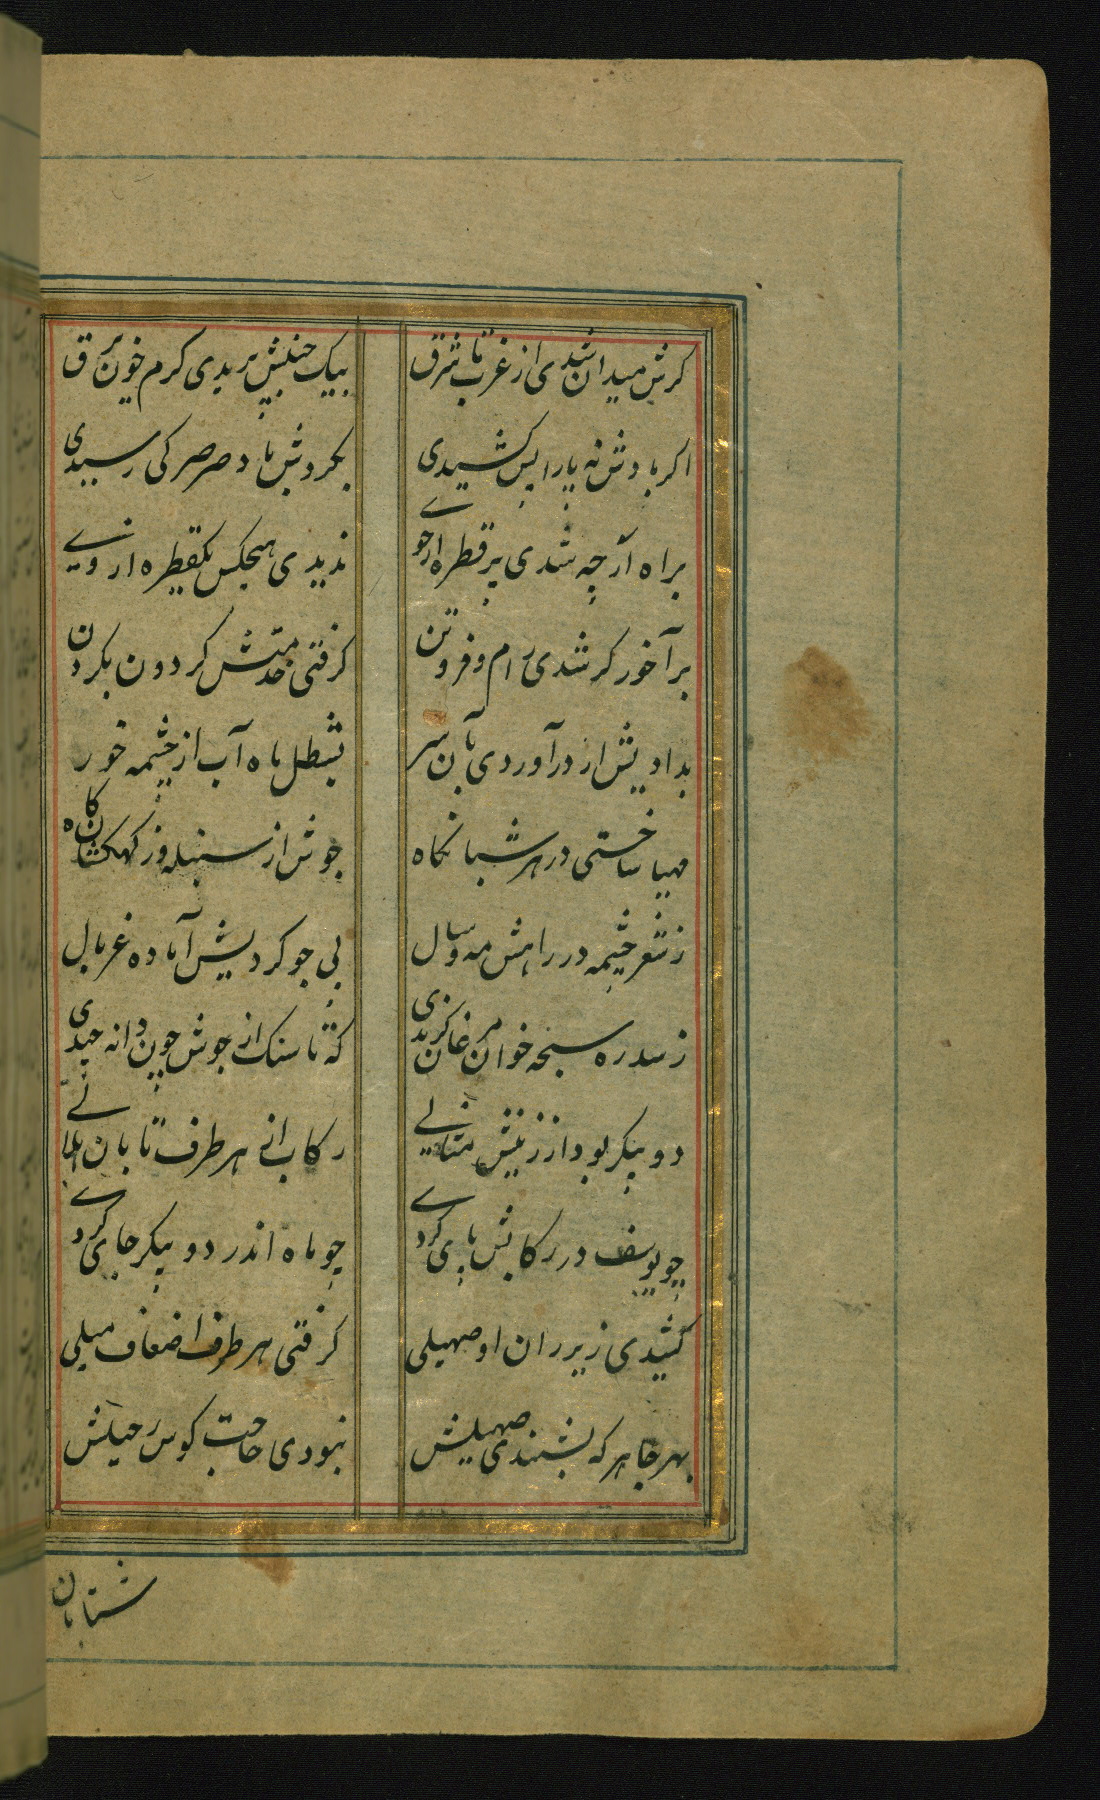 کرش میدان شدی از غرب تا شرق بیک جنبش بریدی کرم خون برق
اکر بادش نه پا را پس کشیدی بکردش باد صرصر کی رسیدی
براه ار چه شدی پر قطره از جوی ندیدی هیچکس یکقطره از وی
بر آخور کر شدی رام و فروتن کرفتی خدمتش کردون بکردن
بدادیش ار در آوردی بآن سر بسطل ماه آب از چشمه خور
مهیا ساختی در هر شبانکاه جوش از سنبله وز کهکشان کاه
ز شعر چشمه در راهش مه و سال پی جو کردیش آماده غربال
ز سدره سبحه خوان مرغان کزیدی که تا سنک از جوش چون دانه چیدی
دو پیکر بود از زینش مثالی رکاب از هر طرف تابان هلالی
چو یوسف در رکابش پای کردی چو ماه اندر دو پیکر جای کردی
کشیدی زیر ران او صهیلی کرفتی هر طرف اضعاف میلی
بهر جا هر که بشنیدی صهیلش نبودی حاجت کوس رحیلش
شتابان